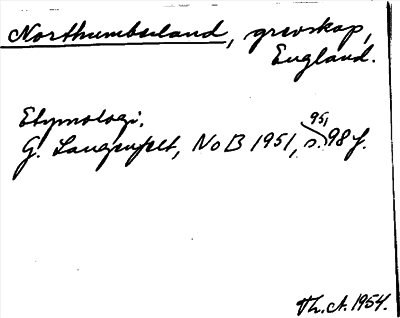 Northumberland, grevskap,
England.
Etymologi.
G. Langenfelt, NoB 1951, s. 95, 98 f.
Th. A. 1954.